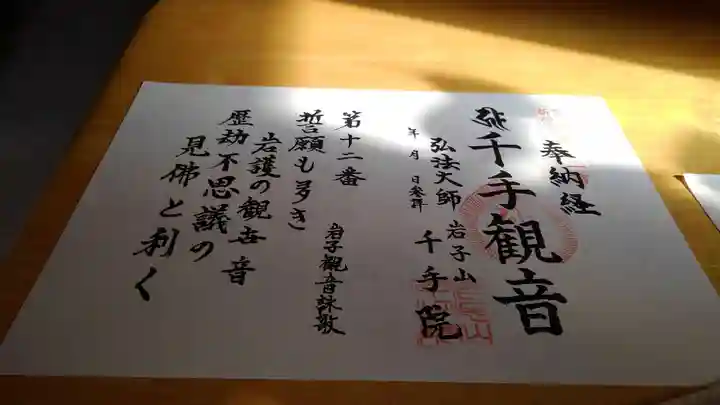 奉納経
千手観音
弘法大師 岩子山
年 月 日参拝 千手院
第十二番 岩子観音詠歌
誓願も多き
岩護の観世音
歴劫不思議の
見佛と利く